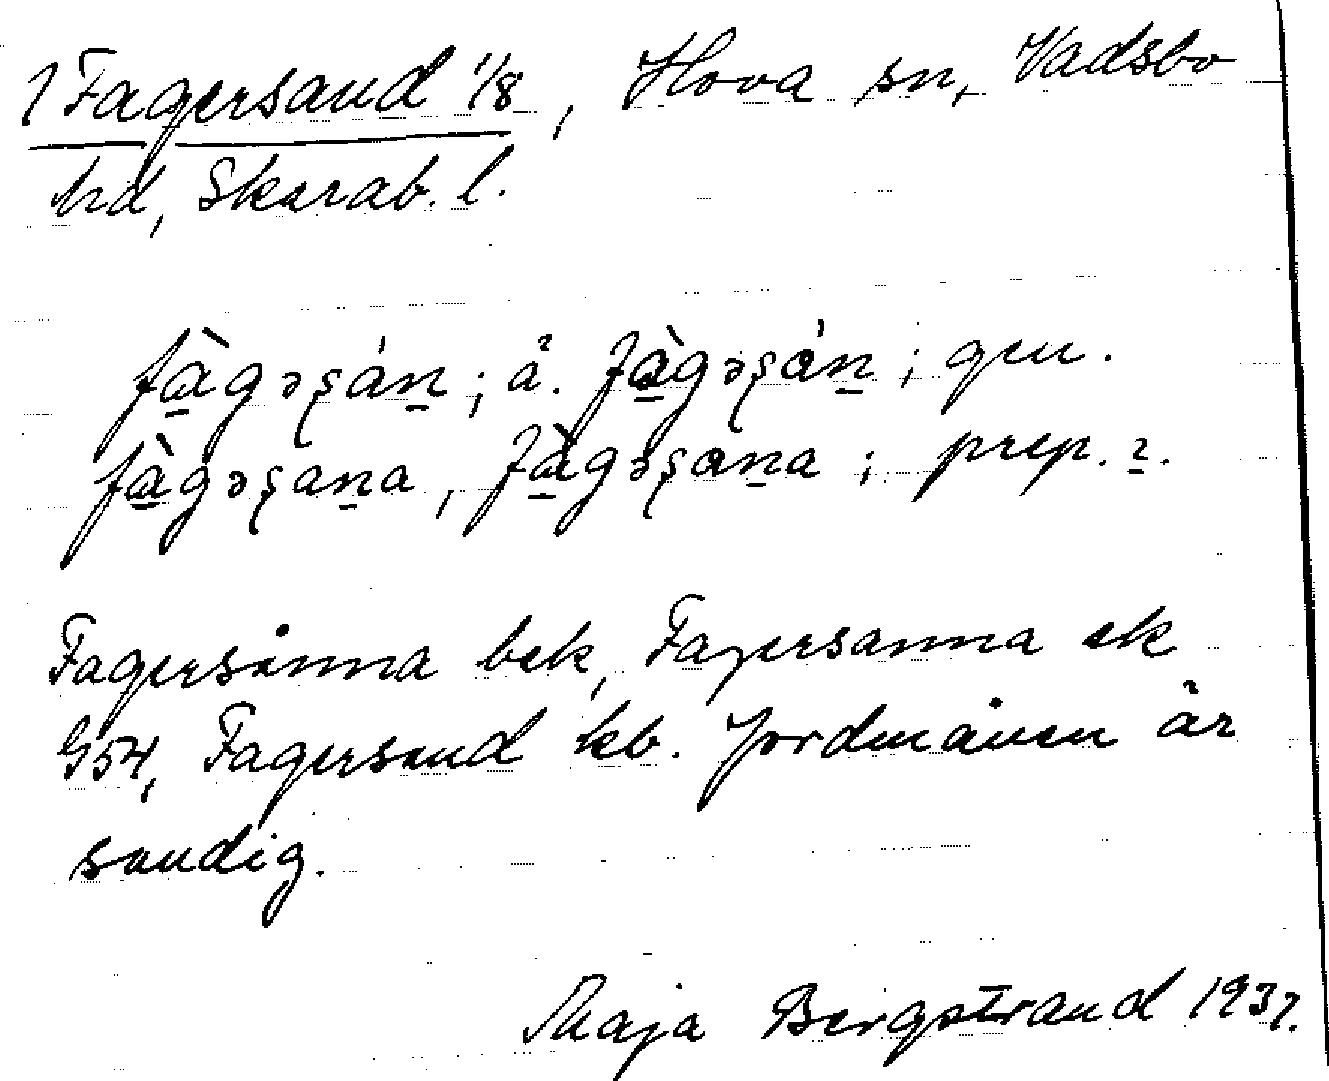 1 Fagersand 1/8, Hova sn, Vadsbo
hd, Skarab. l.
fàgəʂán; ä. fàgəʂán; gen.
fàgəʂana, fàgəʂana; prep. ɩ.
Fagersånna bek, Fagersanna ek
G54, Fagersand kb. Jordmånen är
sandig.
Maja Bergstrand 1937.